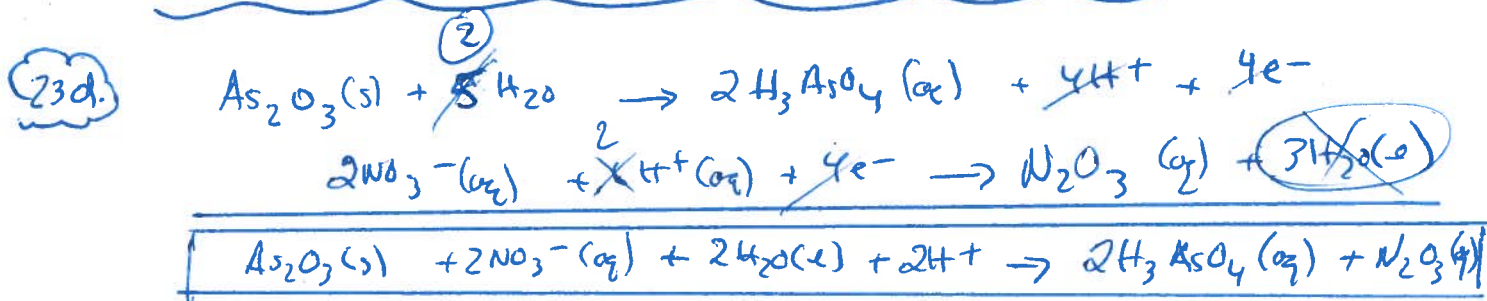 23d.
As₂O₃(s) + 5 H₂O → 2H₃AsO₄ (aq) + 4H⁺ + 4e⁻
2
2NO₃⁻(aq) + H⁺(aq) + 4e⁻ → N₂O₃ (aq) + 3H₂O(l)
2
As₂O₃(s) + 2NO₃⁻(aq) + 2H₂O(l) + 2H⁺ → 2H₃AsO₄ (aq) + N₂O₃(g)